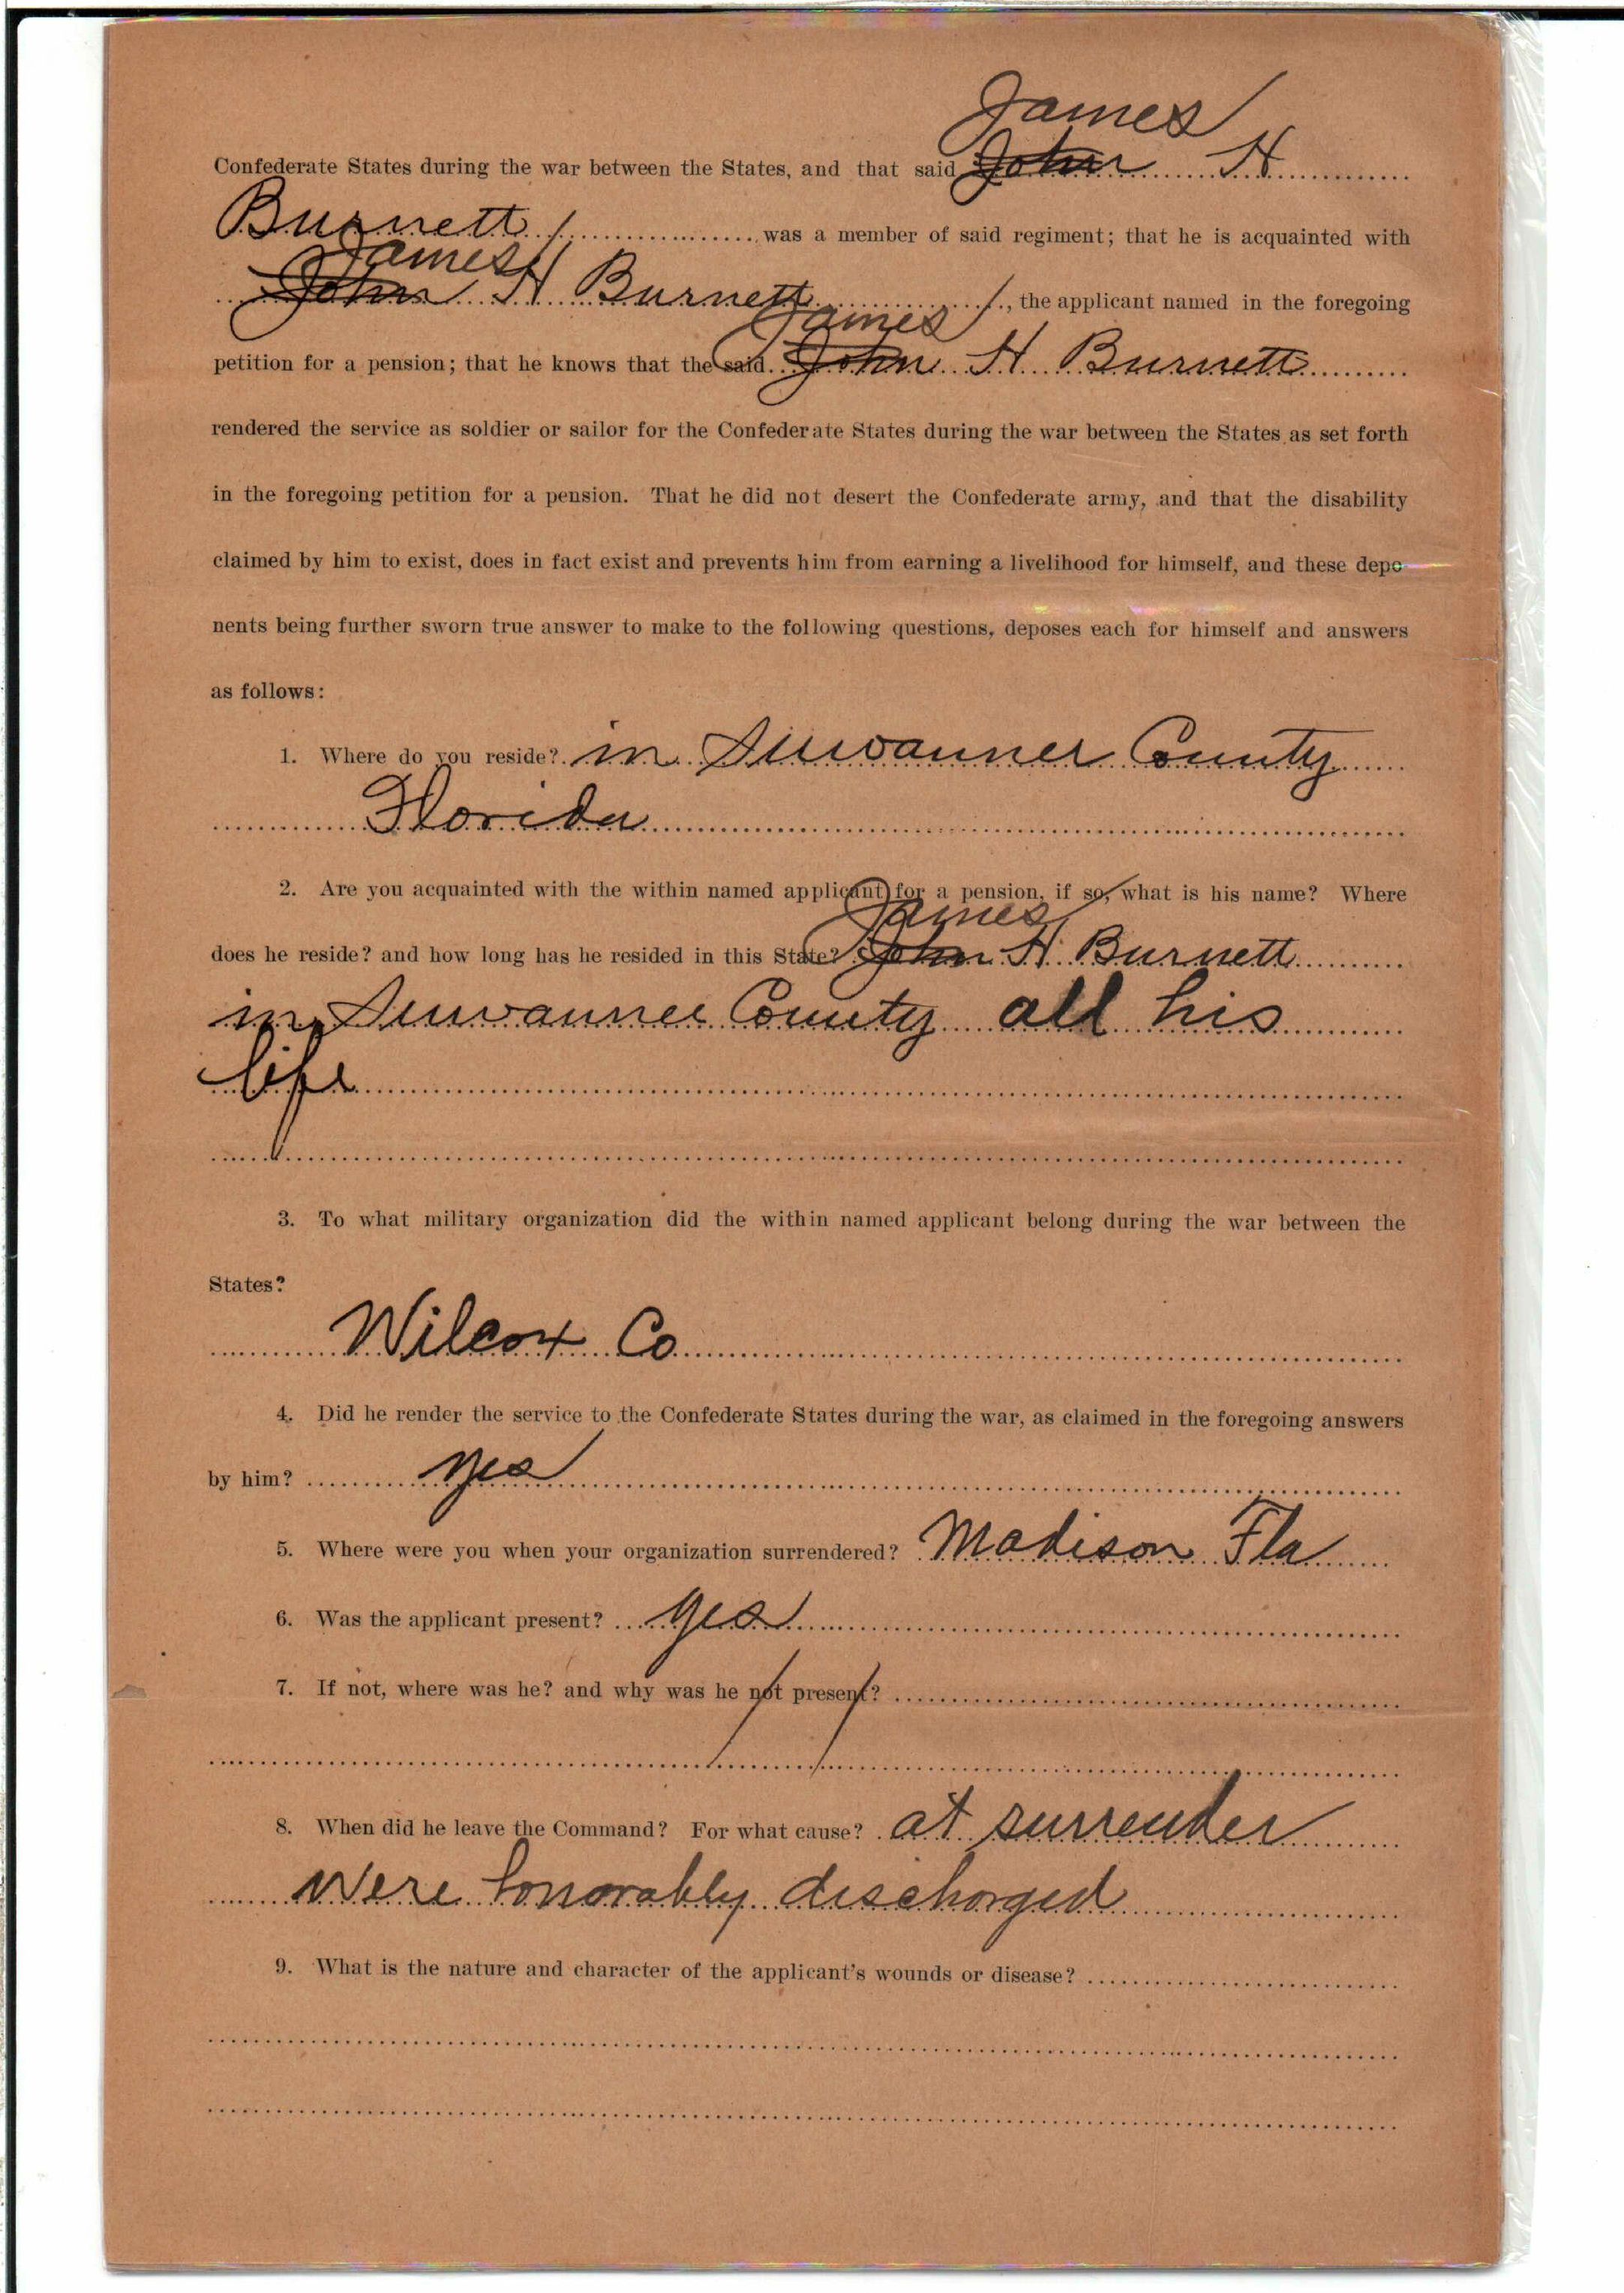 James
Confederate States during the war between the States, and that said John H
Burnett was a member of said regiment; that he is acquainted with
James
John H Burnett, the applicant named in the foregoing
James
petition for a pension; that he knows that the said John H Burnett
rendered the service as soldier or sailor for the Confederate States during the war between the States as set forth
in the foregoing petition for a pension. That he did not desert the Confederate army, and that the disability
claimed by him to exist, does in fact exist and prevents him from earning a livelihood for himself, and these depo-
nents being further sworn true answer to make to the following questions, deposes each for himself and answers
as follows:
1. Where do you reside? in Suwannee County
Florida
2. Are you acquainted with the within named applicant for a pension, if so, what is his name? Where
James
does he reside? and how long has he resided in this State? John H Burnett
in Suwannee County all his
life
3. To what military organization did the within named applicant belong during the war between the
States?
Wilcox Co
4. Did he render the service to the Confederate States during the war, as claimed in the foregoing answers
by him? yes
5. Where were you when your organization surrendered? Madison Fla
6. Was the applicant present? yes
7. If not, where was he? and why was he not present?
8. When did he leave the Command? For what cause? at surrender
Were honorably discharged
9. What is the nature and character of the applicant's wounds or disease?